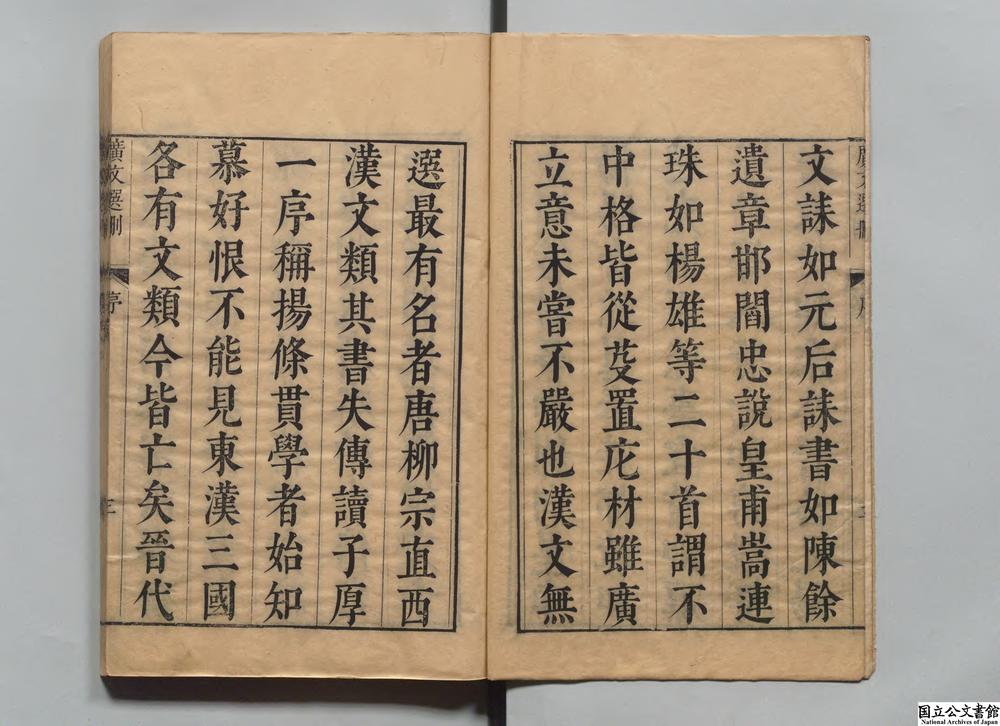 文誄如元后誄書如陳餘
遺章邯閻忠說皇甫嵩連
珠如楊雄等二十首謂不
中格皆從芟置庀材雖廣
立意未嘗不嚴也漢文無
選最有名者唐柳宗直西
漢文類其書失傳讀子厚
一序稱揚條貫學者始知
慕好恨不能見東漢三國
各有文類今皆亡矣晉代
廣文選刪
序
三
国立公文書館
National Archives of Japan